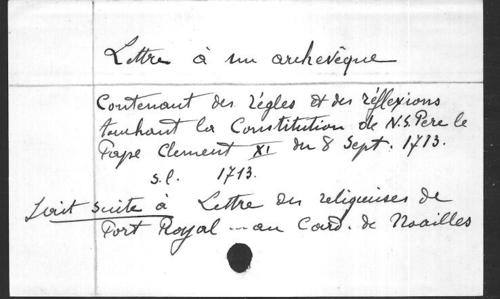 Lettre à un archevêque
Contenant des règles et des réflexions
touchant la Constitution de N.S Père le
Pape Clement XI du 8 Sept. 1713.
s.l. 1713.
Fait suite à Lettre des religieuses de
Port Royal ... au Card. de Noailles